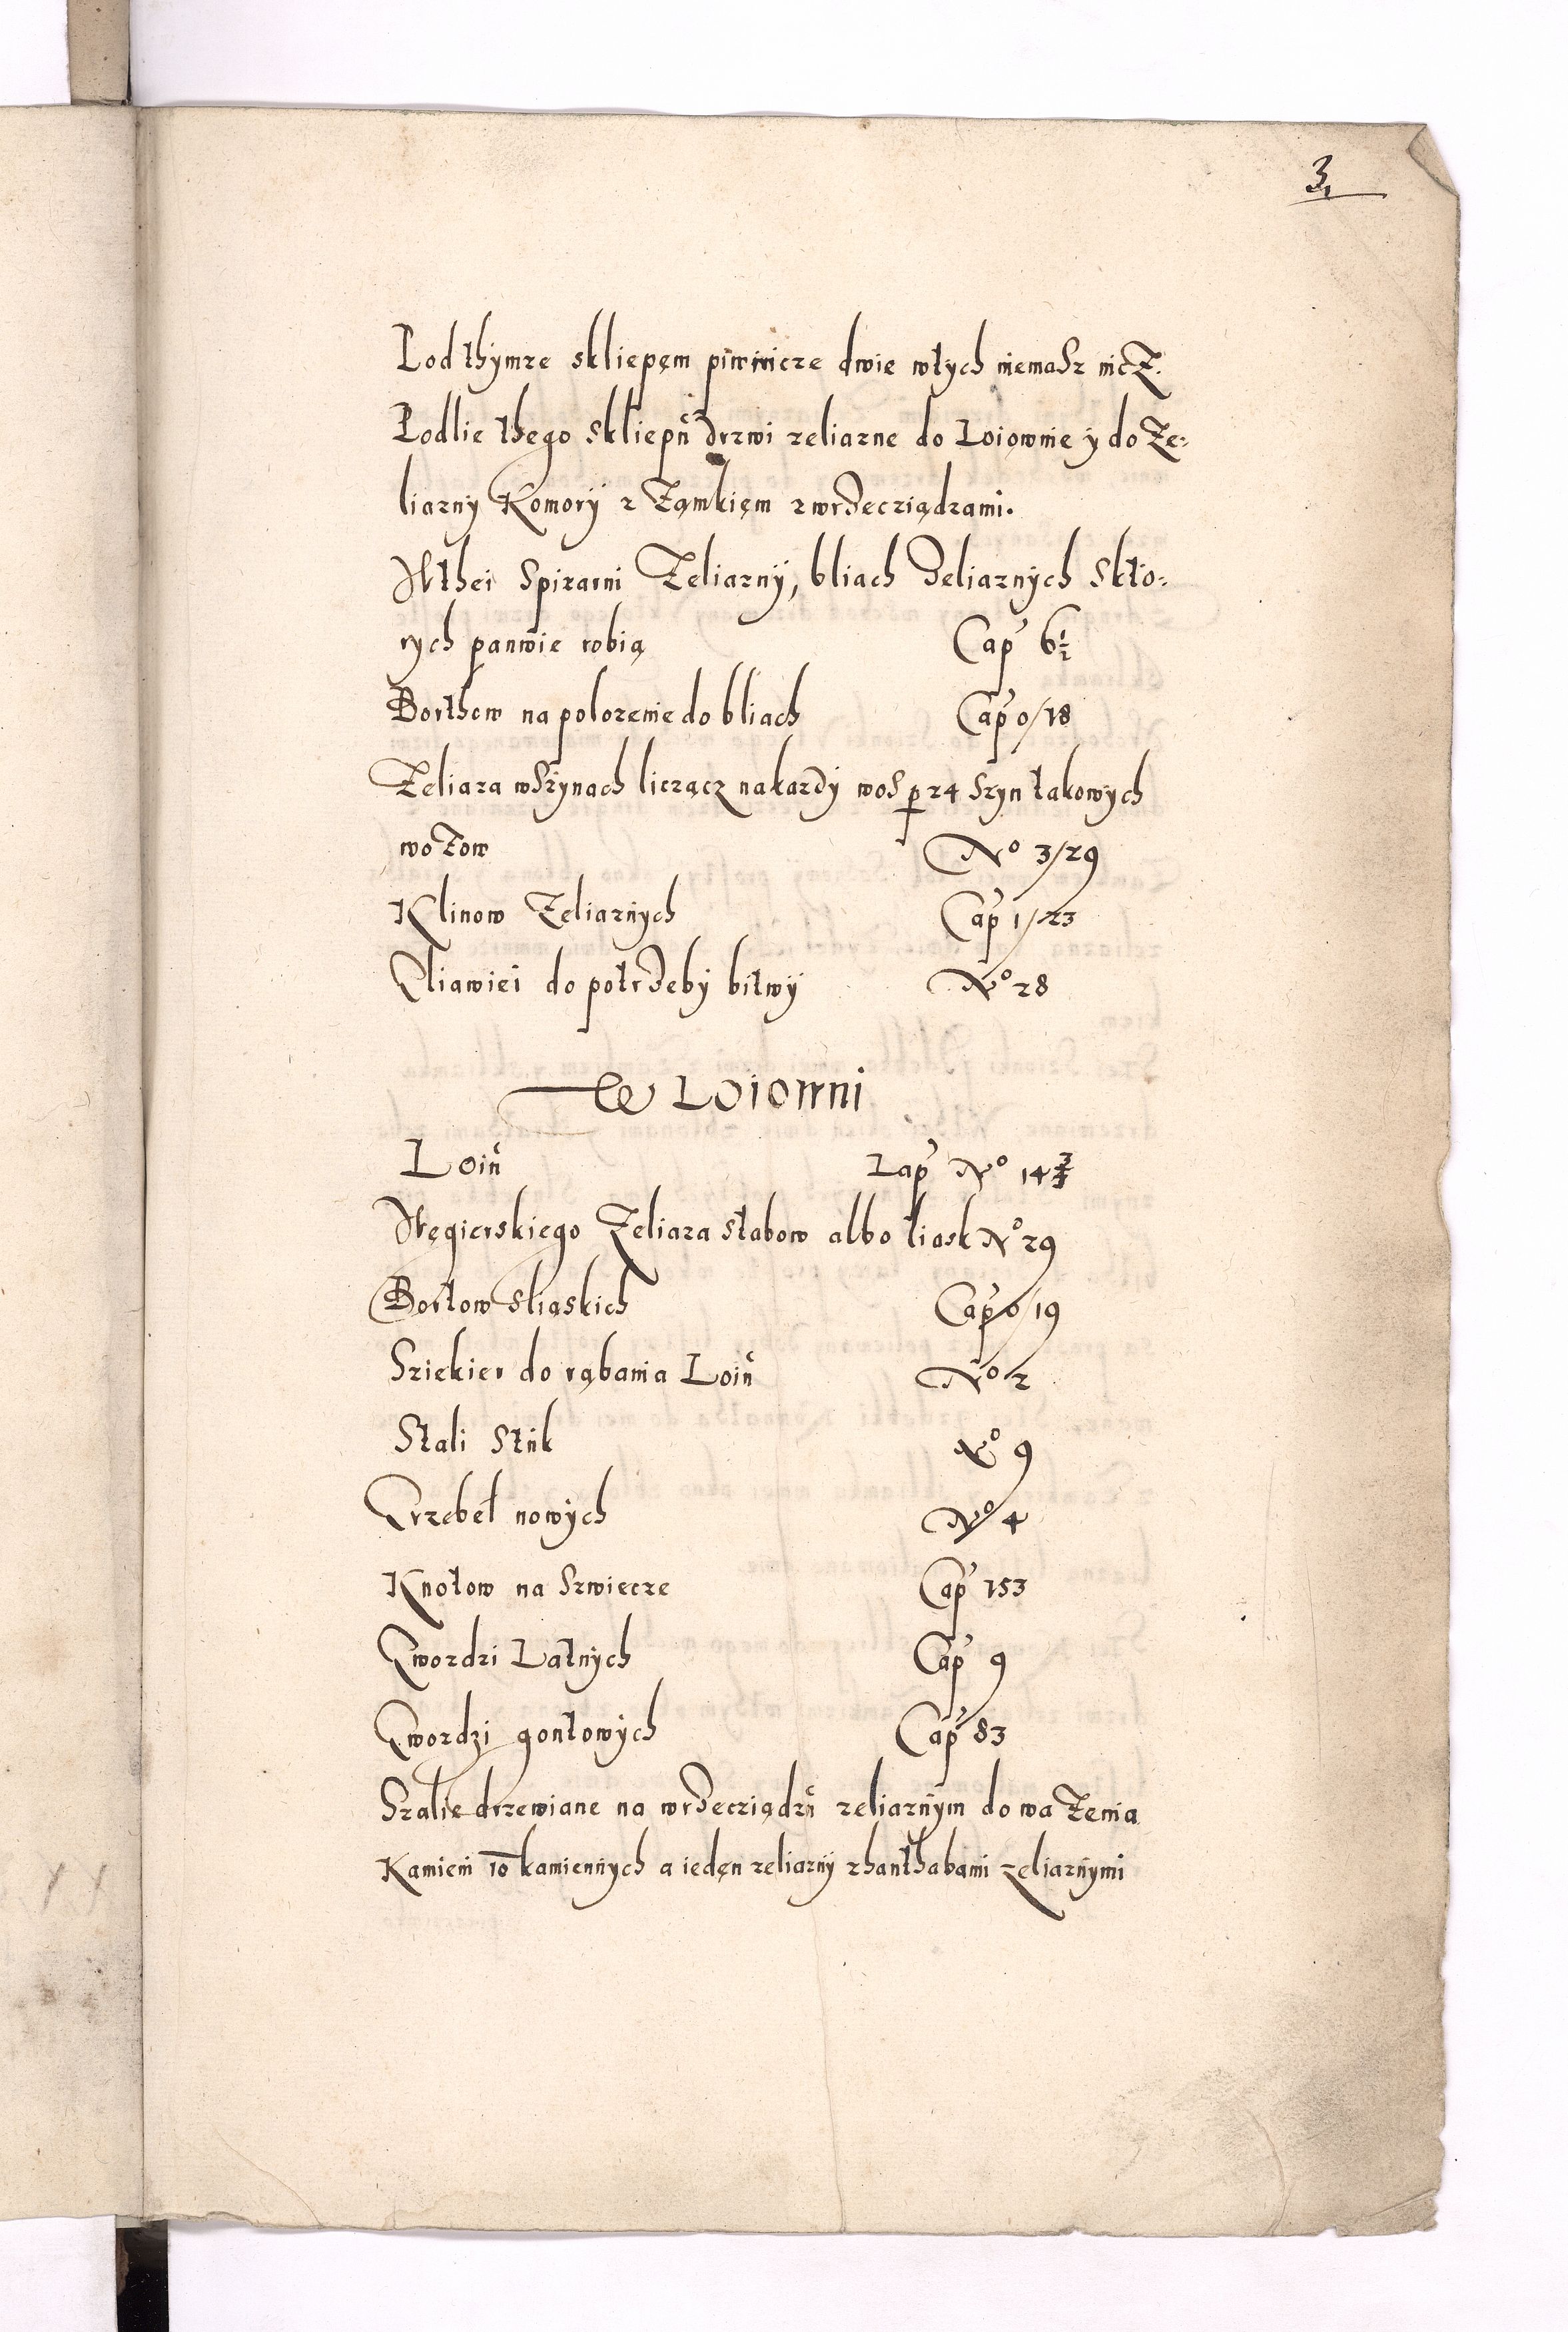 3
Pod thÿmze skliepęm piwnicze dwie wtych niemasz nicZ.
Podlie thego skliepu drzwi zeliazne do Loiownie ÿ do Ze-
liaznÿ Komorÿ z Zamkięm zwrzecziądzami.
Wthei Spizarni Zeliaznÿ, bliach Zeliaznÿch Skto-
rych panwie robią Cap 6½
Borthow na polozenie do bliach Cap 0/18
Zeliaza wszynach licząc nakazdÿ wos p 24 szyn takowych
wozow No 3/29
Klinow Zeliaznÿch Cap 1/23
Gliawiei do potrzebÿ bitwÿ No 28
W Loiowni
Loiu Lap No 14¾
Węgierskiego Zeliaza stabow albo liask No 29
Bortow Sliąskich Cap 0/19
Sziekier do rąbania Loiu No 2
Stali Stuk No 9
Grzebel nowÿch No 4
Knotow na Szwiecze Cap 153
Gwozdzi Latnÿch Cap 9
Gwozdzi gontowÿch Cap 83
Szalie drzewiane na wrzecziądzu zeliaznÿm do waZenia
Kamieni 10 kamiennÿch a iedęn zeliaznÿ zhanthabami zeliaznÿmi